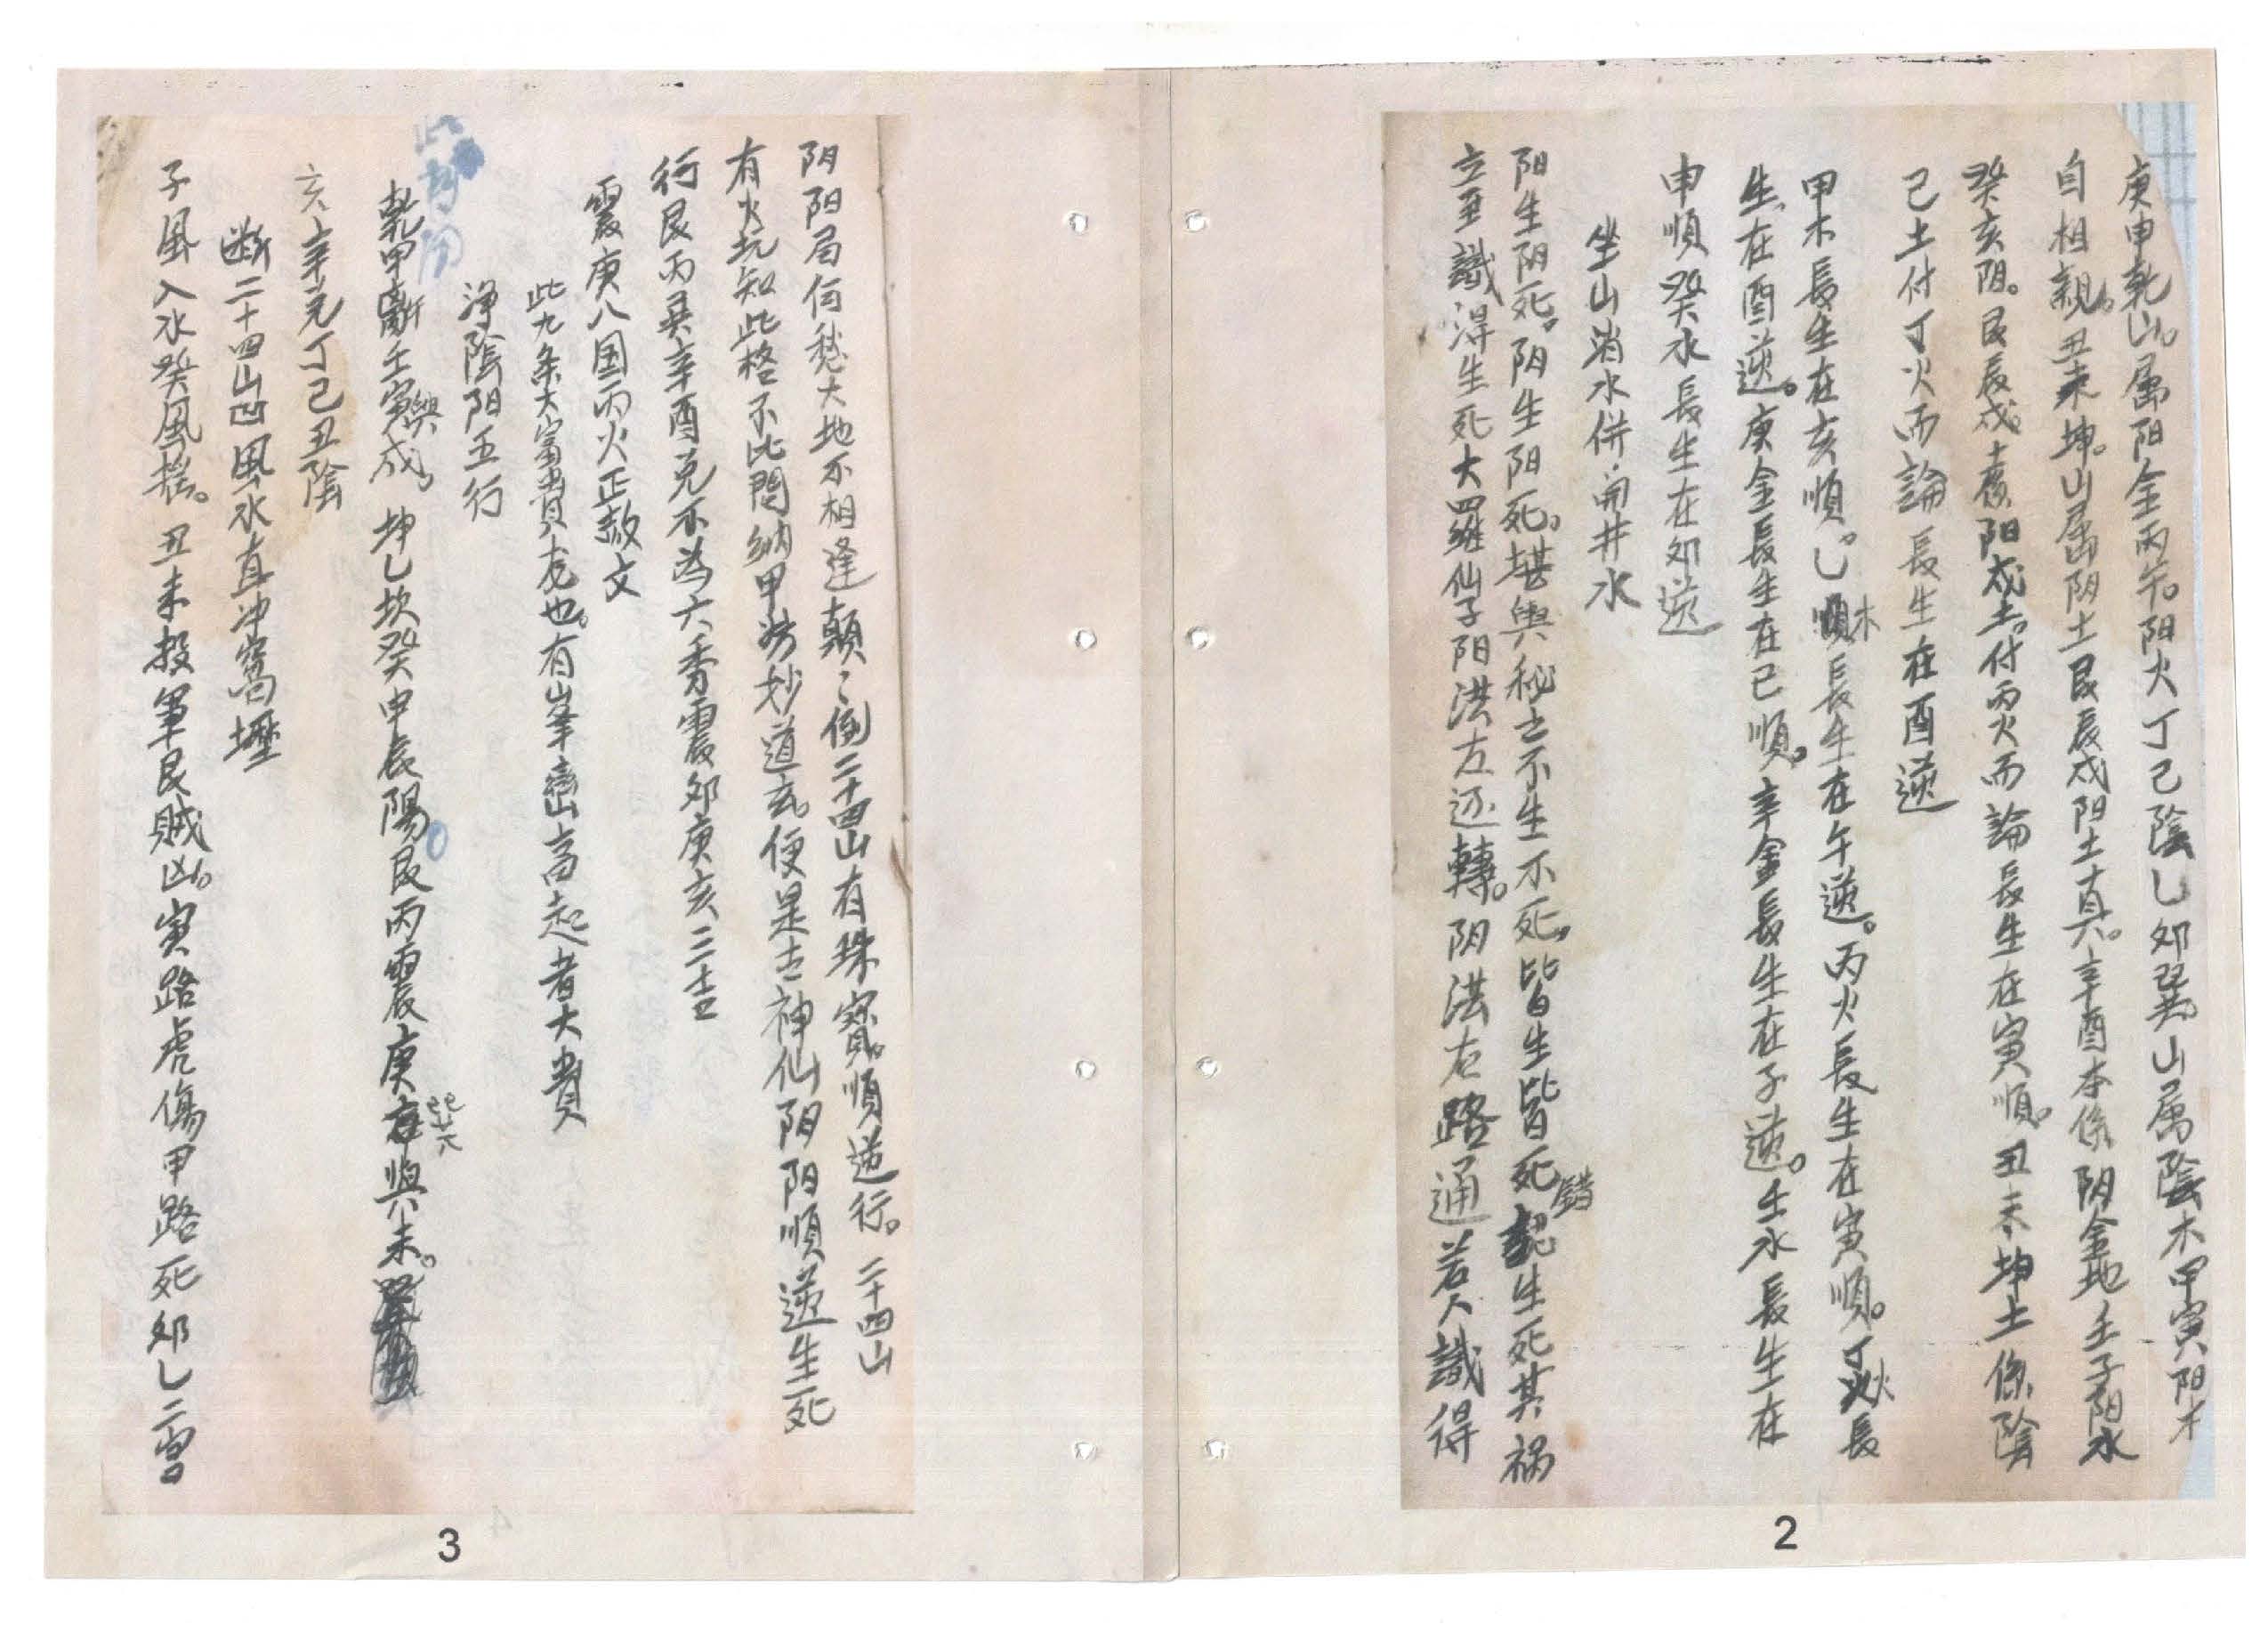 庚申乾山。属阳金丙午。阳火丁己陰乚卯巽山属陰木甲寅阳木
自相親。丑未坤。山属阴土艮辰戍阳土真。辛酉本係阴金地壬子阳水
癸亥阴。艮辰戍土原阳戍土。付丙火而論長生在寅順。丑未坤土係陰
己土付丁火而論長生在酉逆
甲木長生在亥順。乚木長生在午逆。丙火長生在寅順。丁火長
生在酉逆。庚金長生在己順。辛金長生在子逆。壬水長生在
申順癸水長生在卯逆
坐山消水併開井水
阳生阴死。阴生阳死。堪輿秘之不生不死。皆生皆死錯認生死其祸
立至識得生死大四維仙子阳洪左还轉。阴洪右路通若人識得
阴阳局何愁大地不相逢顛〻倒二十四山有珠寶。順逆行。二十四山
有火坑知此格不比閏納甲妙道玄。便是神仙阴阳順逆生死
行艮丙巽辛酉兑不為六秀震卯庚亥三吉
震庚八国丙火正赦文
此九条大富貴龙也。有峯巒山高起者大貴
浄陰阳五行
乾甲離壬寅與戍。坤乚坎癸申辰陽艮丙震庚與未。
亥辛兑丁己丑陰
断二十四山凹風水直冲窩壢
子風入水癸風摇。丑未投軍艮賊凶。寅路虎傷甲路死卯乚二宫
3
2